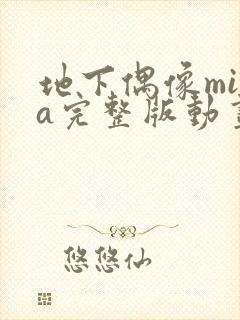 地下偶像mi
a完整版动
悠悠仙